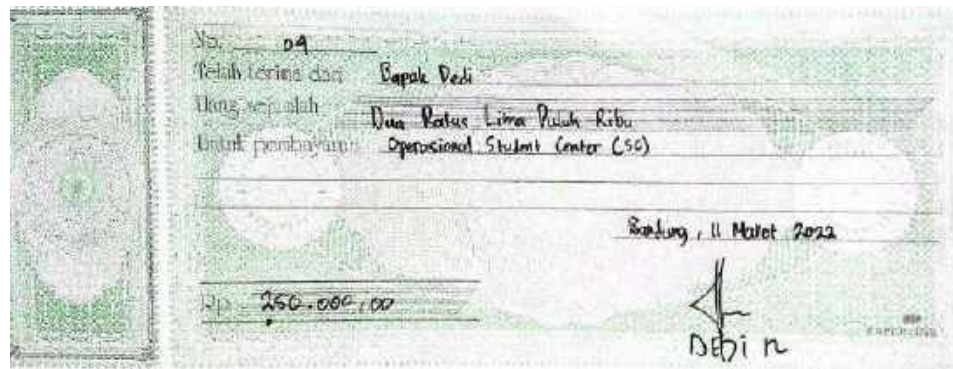 No. 09
Telah terima dari Bapak Dedi
Uang sejumlah Dua Ratus Lima Puluh Ribu
Untuk pembayaran Operasional Student Center (SC)
Bandung, 11 Maret 2022
Rp. 250.000,00
Debi n